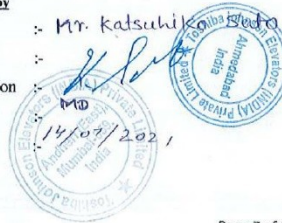 by
:- Mr. Katsuhiko Sato
:-
on :-
MD
:- 14/07/2021
Toshiba Johnson Elevators (INDIA) Private Limited
Ahmedabad
India
Toshiba Johnson Elevators (INDIA) Private Limited
Andheri (East)
Mumbai
India